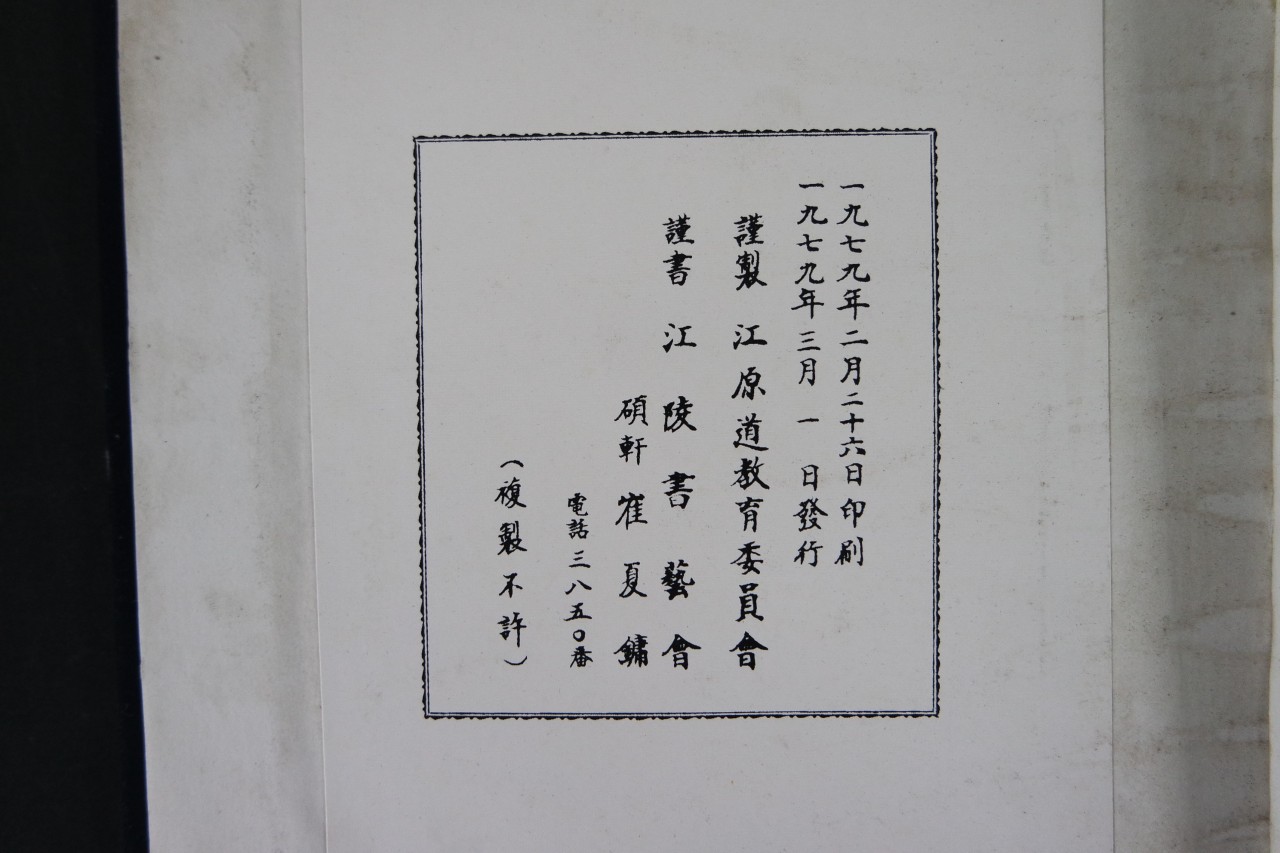 一九七九年二月二十六日印刷
一九七九年三月一日發行
謹製 江原道教育委員會
謹書 江陵書藝會
碩軒 崔夏鏞
電話三八五〇番
(複製不許)